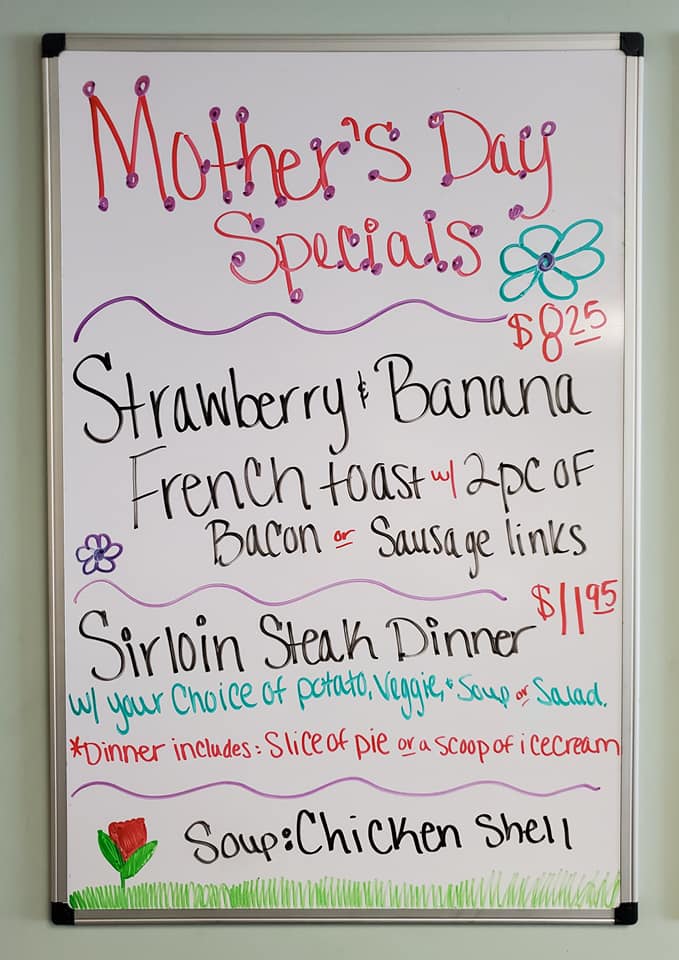 Mother's Day
Specials
$8.25
Strawberry & Banana
French toast w/ 2pc of
Bacon or Sausage links
$11.95
Sirloin Steak Dinner
w/ your Choice of potato, Veggie, & Soup or Salad.
*Dinner includes: Slice of pie or a scoop of icecream
Soup: Chicken Shell